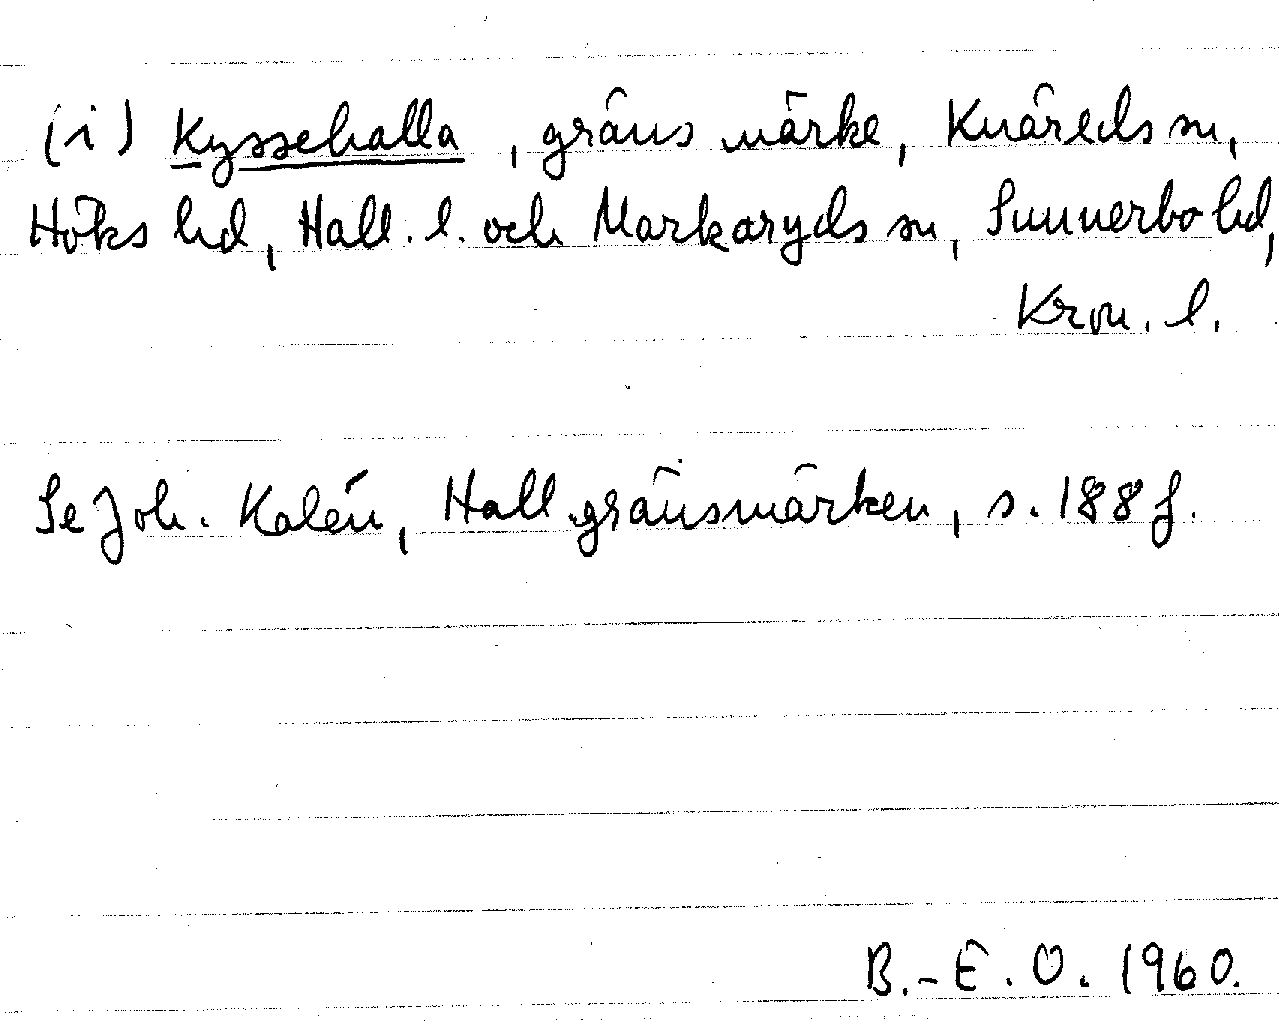 (i) Kyssehalla, gränsmärke, Knäreds sn,
Höks hd, Hall. l. och Markaryds sn, Sunnerbo hd,
Kron. l.
Se Joh. Kalén, Hall. gränsmärken, s. 188 f.
B.-E. O. 1960.